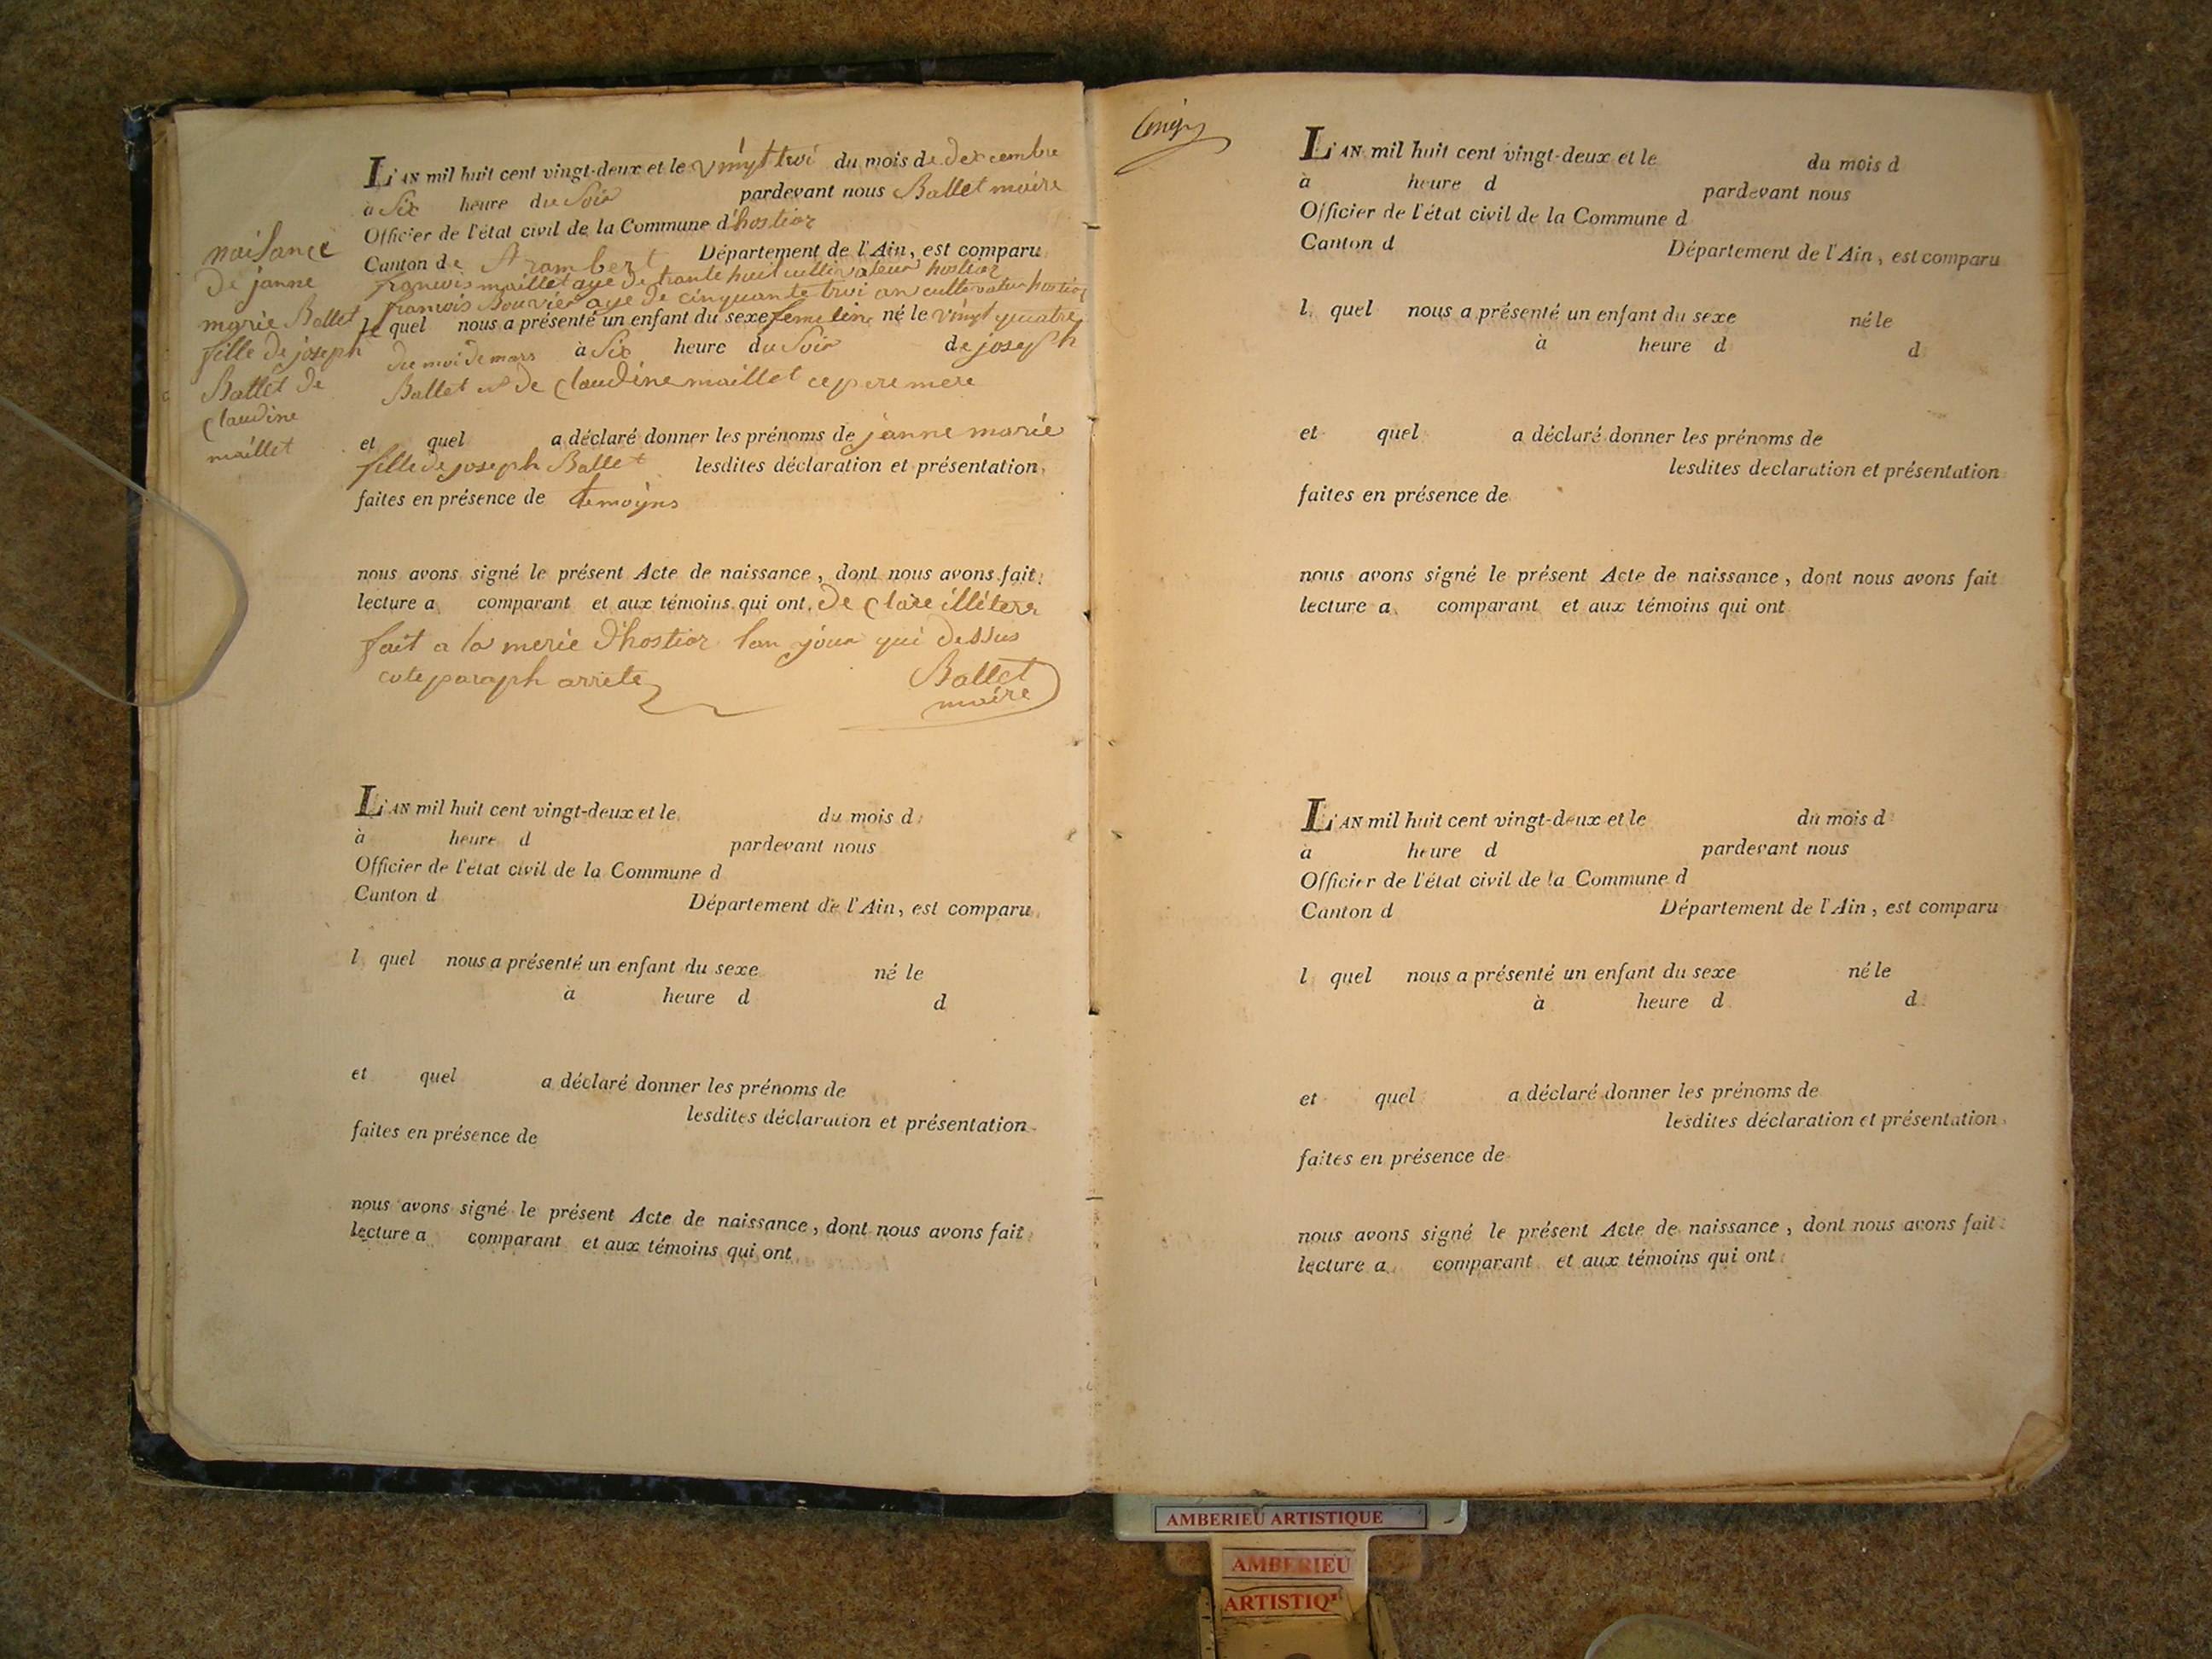 naisance
de janne
marie Ballet
fille de joseph
Ballet de
claudine
maillet
L'AN mil huit cent vingt-deux et le vingt troi du mois de decembre
à Six heure du Soir pardevant nous Ballet maire
Officier de l'état civil de la Commune d'hostiaz
Canton de St rambert Département de l'Ain, est comparu
francois maillet aye de trante huit cultivateur hostiaz
francois Bouvier aye de cinquante troi an cultivatur hostiaz
le quel nous a présenté un enfant du sexe femeline né le vingt quatre
du moi de mars à Six heure du Soir de joseph
Ballet de claudine maillet ce pere mere
et quel a déclaré donner les prénoms de janne marie
fille de joseph Ballet lesdites déclaration et présentation
faites en présence de temoyns
nous avons signé le présent Acte de naissance, dont nous avons fait
lecture a comparant et aux témoins qui ont de clare illetere
fait a la merie d'hostiaz lan jour qui dessus
cote paraph arrete
Ballet
maire
L'AN mil huit cent vingt-deux et le du mois d
à heure d pardevant nous
Officier de l'état civil de la Commune d
Canton d Département de l'Ain, est comparu
l quel nous a présenté un enfant du sexe né le
à heure d d
et quel a déclaré donner les prénoms de
lesdites déclaration et présentation
faites en présence de
nous avons signé le présent Acte de naissance, dont nous avons fait
lecture a comparant et aux témoins qui ont
L'AN mil huit cent vingt-deux et le du mois d
à heure d pardevant nous
Officier de l'état civil de la Commune d
Canton d Département de l'Ain, est comparu
l quel nous a présenté un enfant du sexe né le
à heure d d
et quel a déclaré donner les prénoms de
lesdites declaration et présentation
faites en présence de
nous avons signé le présent Acte de naissance, dont nous avons fait
lecture a comparant et aux témoins qui ont
L'AN mil huit cent vingt-deux et le du mois d
à heure d pardevant nous
Officier de l'état civil de la Commune d
Canton d Département de l'Ain, est comparu
l quel nous a présenté un enfant du sexe né le
à heure d d
et quel a déclaré donner les prénoms de
lesdites déclaration et présentation
faites en présence de
nous avons signé le présent Acte de naissance, dont nous avons fait
lecture a comparant et aux témoins qui ont
AMBERIEU ARTISTIQUE
AMBERIEU
ARTISTIQ